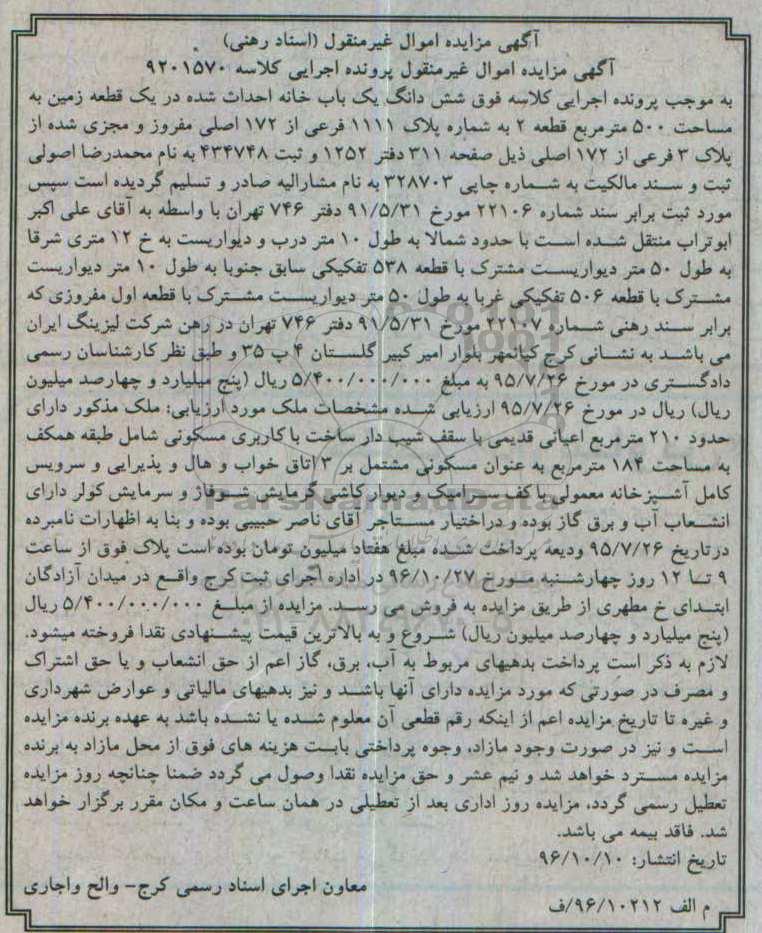 آگهی مزایده اموال غیرمنقول (اسناد رهنی)
آگهی مزایده اموال غیرمنقول پرونده اجرایی کلاسه ۹۲۰۱۵۷۰
به موجب پرونده اجرایی کلاسه فوق شش دانگ یک باب خانه احداث شده در یک قطعه زمین به
مساحت ۵۰۰ مترمربع قطعه ۲ به شماره پلاک ۱۱۱۱ فرعی از ۱۷۲ اصلی مفروز و مجزی شده از
پلاک ۳ فرعی از ۱۷۲ اصلی ذیل صفحه ۳۱۱ دفتر ۱۲۵۲ و ثبت ۴۳۴۷۴۸ به نام محمدرضا اصولی
ثبت و سند مالکیت به شماره چاپی ۳۲۸۷۰۳ به نام مشارالیه صادر و تسلیم گردیده است سپس
مورد ثبت برابر سند شماره ۲۲۱۰۶ مورخ ۹۱/۵/۳۱ دفتر ۷۴۶ تهران با واسطه به آقای علی اکبر
ابوتراب منتقل شده است با حدود شمالا به طول ۱۰ متر درب و دیواریست به خ ۱۲ متری شرقا
به طول ۵۰ متر دیواریست مشترک با قطعه ۵۳۸ تفکیکی سابق جنوبا به طول ۱۰ متر دیواریست
مشترک با قطعه ۵۰۶ تفکیکی غربا به طول ۵۰ متر دیواریست مشترک با قطعه اول مفروزی که
برابر سند رهنی شماره ۲۲۱۰۷ مورخ ۹۱/۵/۳۱ دفتر ۷۴۶ تهران در رهن شرکت لیزینگ ایران
می باشد به نشانی کرج کیانمهر بلوار امیر کبیر گلستان ۴ پ ۳۵ و طبق نظر کارشناسان رسمی
دادگستری در مورخ ۹۵/۷/۲۶ به مبلغ ۵/۴۰۰/۰۰۰/۰۰۰ ریال (پنج میلیارد و چهارصد میلیون
ریال) ریال در مورخ ۹۵/۷/۲۶ ارزیابی شده مشخصات ملک مورد ارزیابی: ملک مذکور دارای
حدود ۲۱۰ مترمربع اعیانی قدیمی با سقف شیب دار ساخت با کاربری مسکونی شامل طبقه همکف
به مساحت ۱۸۴ مترمربع به عنوان مسکونی مشتمل بر ۳ اتاق خواب و هال و پذیرایی و سرویس
کامل آشپزخانه معمولی با کف سرامیک و دیوار کاشی گرمایش شوفاژ و سرمایش کولر دارای
انشعاب آب و برق گاز بوده و دراختیار مستاجر آقای ناصر حبیبی بوده و بنا به اظهارات نامبرده
درتاریخ ۹۵/۷/۲۶ ودیعه پرداخت شده مبلغ هفتاد میلیون تومان بوده است پلاک فوق از ساعت
۹ تا ۱۲ روز چهارشنبه مورخ ۹۶/۱۰/۲۷ در اداره اجرای ثبت کرج واقع در میدان آزادگان
ابتدای خ مطهری از طریق مزایده به فروش می رسد. مزایده از مبلغ ۵/۴۰۰/۰۰۰/۰۰۰ ریال
(پنج میلیارد و چهارصد میلیون ریال) شروع و به بالاترین قیمت پیشنهادی نقدا فروخته میشود.
لازم به ذکر است پرداخت بدهیهای مربوط به آب، برق، گاز اعم از حق انشعاب و یا حق اشتراک
و مصرف در صورتی که مورد مزایده دارای آنها باشد و نیز بدهیهای مالیاتی و عوارض شهرداری
و غیره تا تاریخ مزایده اعم از اینکه رقم قطعی آن معلوم شده یا نشده باشد به عهده برنده مزایده
است و نیز در صورت وجود مازاد، وجوه پرداختی بابت هزینه های فوق از محل مازاد به برنده
مزایده مسترد خواهد شد و نیم عشر و حق مزایده نقدا وصول می گردد ضمنا چنانچه روز مزایده
تعطیل رسمی گردد، مزایده روز اداری بعد از تعطیلی در همان ساعت و مکان مقرر برگزار خواهد
شد. فاقد بیمه می باشد.
تاریخ انتشار: ۹۶/۱۰/۱۰
معاون اجرای اسناد رسمی کرج- والح واجاری
م الف ۹۶/۱۰۲۱۲/ف
ParsNamadData